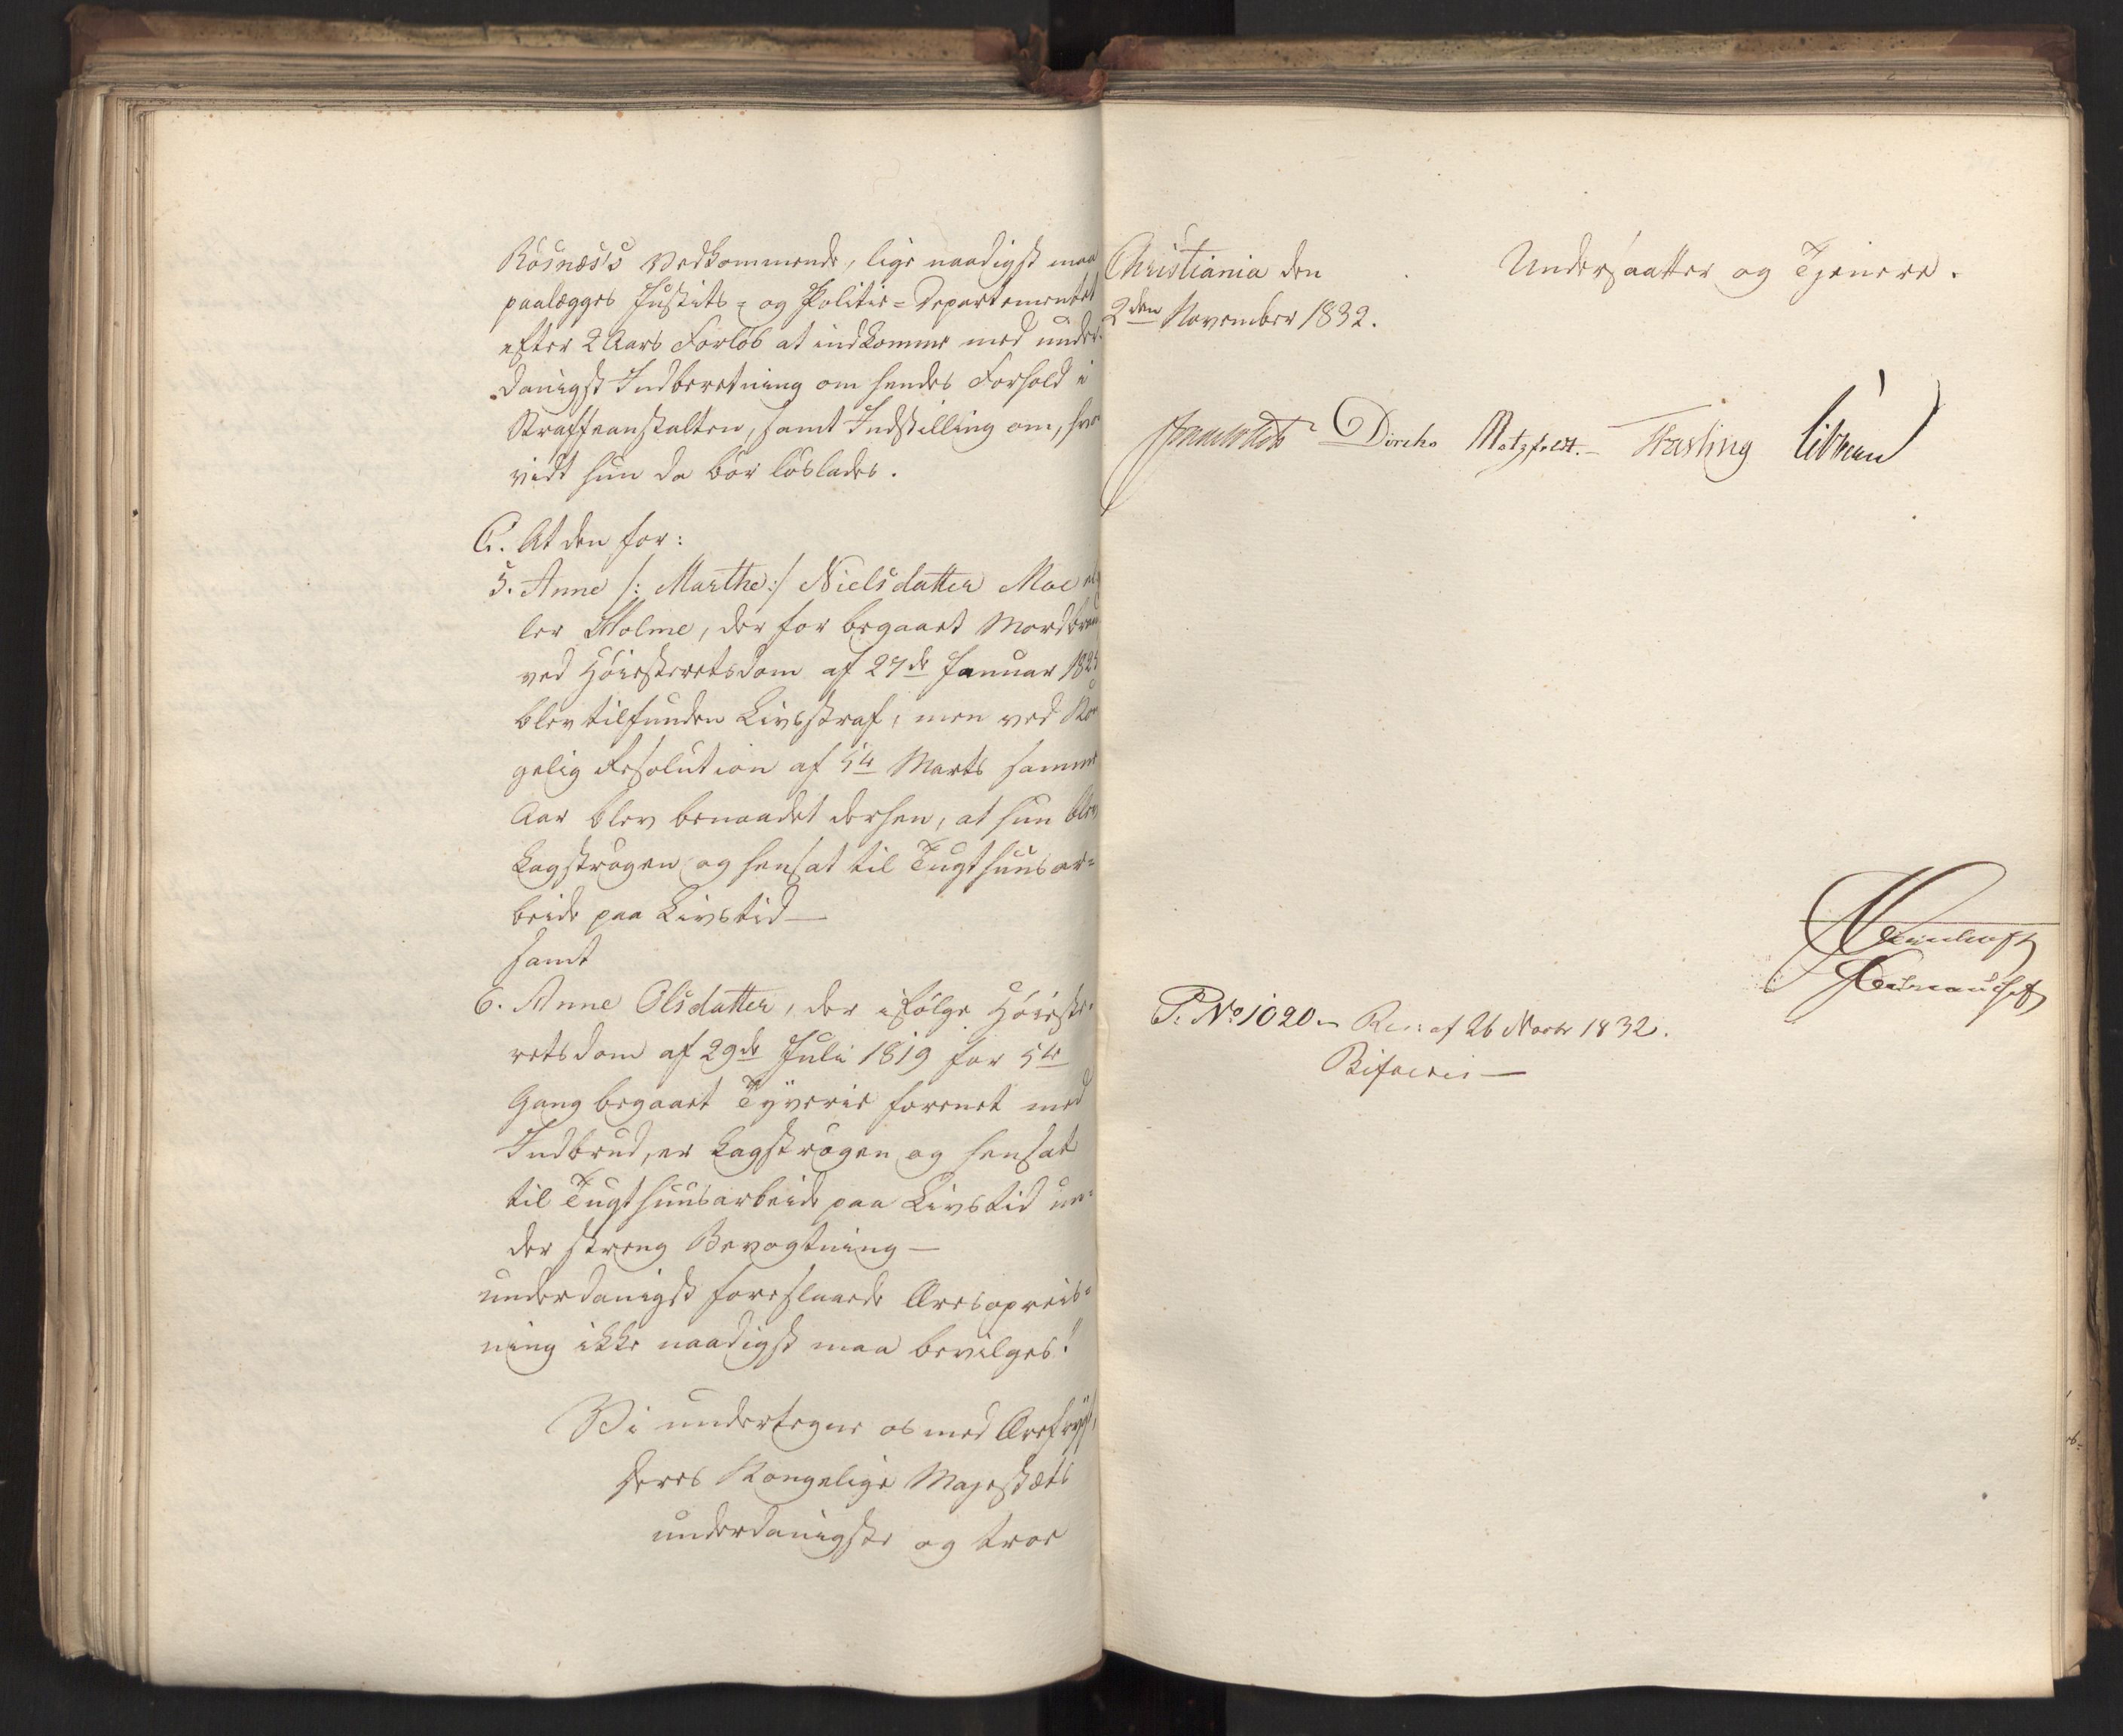 Rosnæs's Vedkommende, lige naadigst maa
paalægges Justits- og Politie-Departementet
efter 2 Aars Forløb at indkomme med under-
danigst Indberetning om hendes Forhold i
Straffeanstalten, samt Indstilling om, hvor
vidt hun da bør løslades.
C. At den for:
5. Anne /: Marthe:/ Nielsdatter Moe el
ler Holme, der for begaaet Mordbrand
ved Høiesteretsdom af 27de Januar
blev tilfunden Livsstraf, men ved Kon
gelig Resolution af 5te Marts samme
Aar blev benaadet derhen, at hun blev
kagstrøgen og hensat til Tugthuusar-
beide paa Livstid —
samt
6. Anne Olsdatter, der ifølge Høieste-
retsdom af 29de Juli 1819 for 5te
Gang begaaet Tyverie forenet med
Indbrud, er kagstrøgen og hensat
til Tugthuusarbeide paa Livstid un-
der streng Bevogtning —
underdanigst foreslaaede Æresopreis-
ning ikke naadigst maa bevilges."
Vi undertegne os med Ærefrygt,
Deres Kongelige Majestæts
underdanigste og troe
Christiania den
2den November 1832.
Undersaatter og Tjenere.
Diriks Motzfeldt. Fasting
P. No 1020. Res: af 26 Novbr 1832.
Bifaldes —